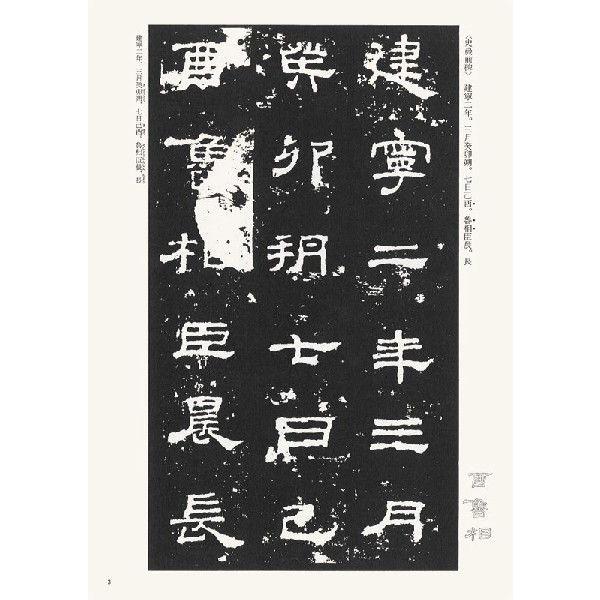 〈史晨前碑〉 建寧二年。三月癸卯朔。七日己酉。魯相臣晨。長
建寧二年三月
癸卯朔七日己
酉魯相臣晨長
酉魯相
建寧二年、三月癸卯朔、七日己酉、魯相臣晨、長
3